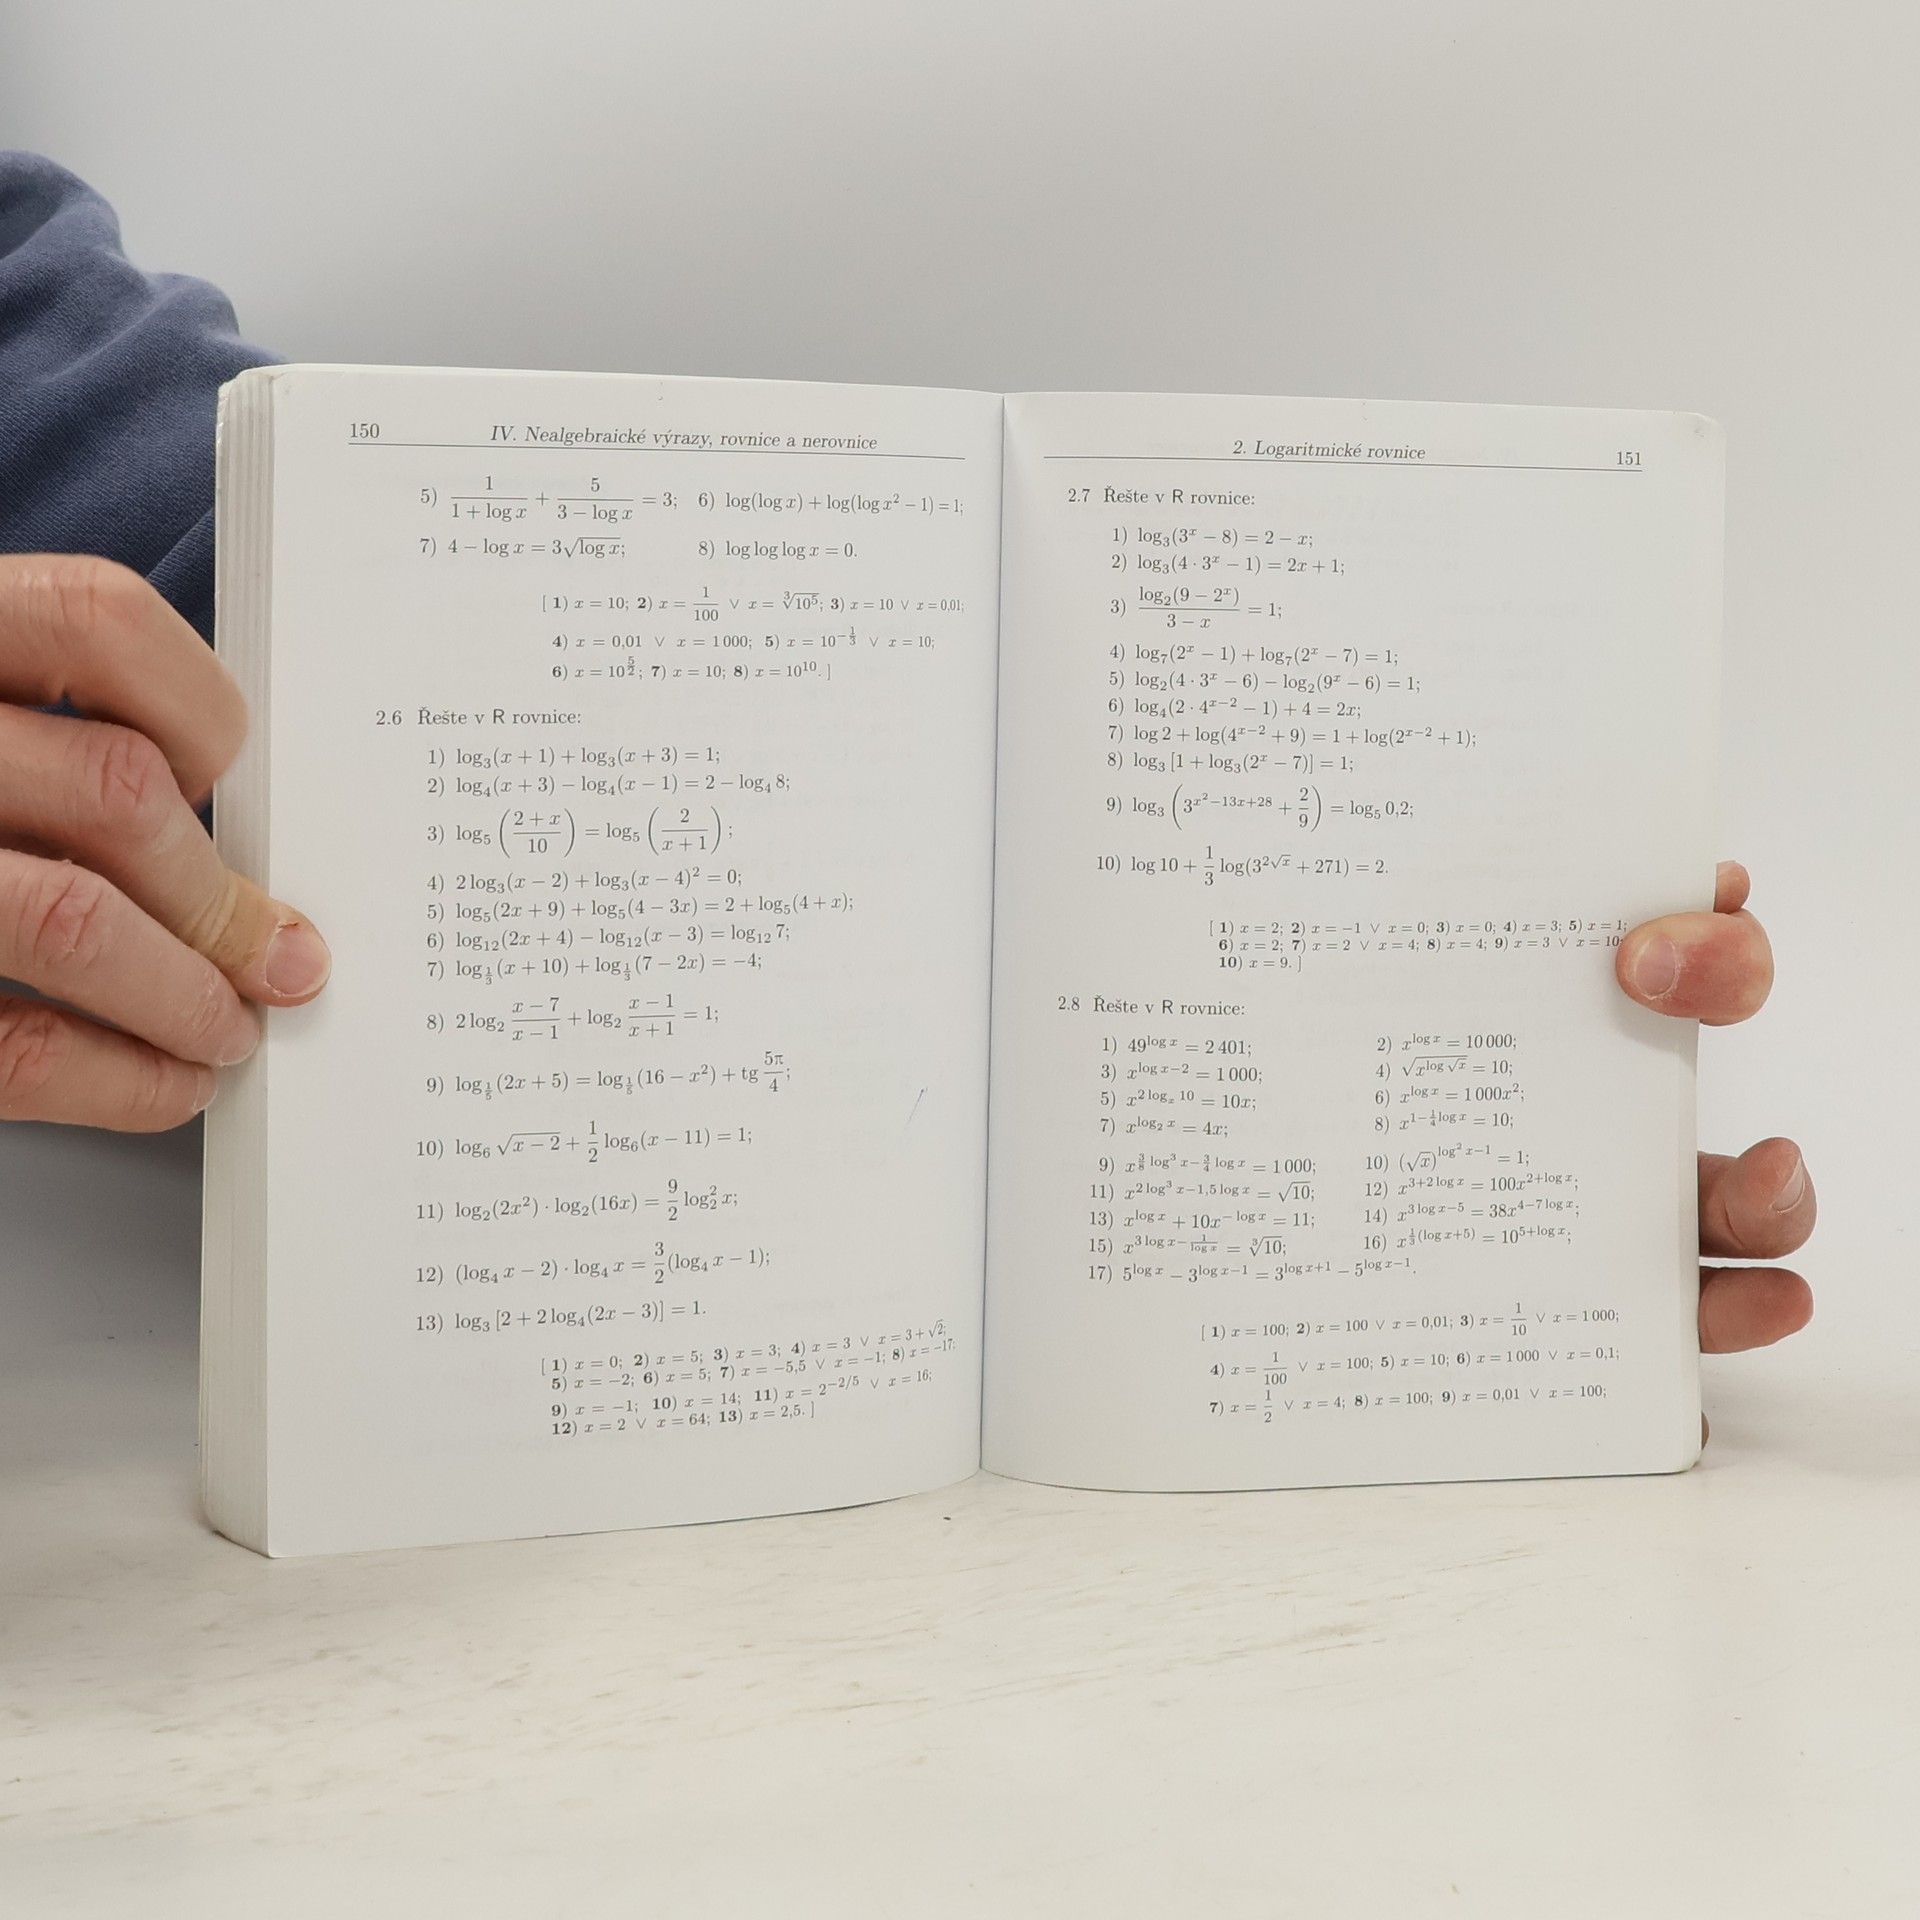 150 IV. Nealgebraické výrazy, rovnice a nerovnice
5) 1/(1 + log x) + 5/(3 − log x) = 3; 6) log(log x) + log(log x² − 1) = 1;
7) 4 − log x = 3√(log x); 8) log log log x = 0.
[ 1) x = 10; 2) x = 1/100 ∨ x = ∛(10⁵); 3) x = 10 ∨ x = 0,01;
4) x = 0,01 ∨ x = 1 000; 5) x = 10^(−1/3) ∨ x = 10;
6) x = 10^(5/2); 7) x = 10; 8) x = 10¹⁰. ]
2.6 Řešte v R rovnice:
1) log₃(x + 1) + log₃(x + 3) = 1;
2) log₄(x + 3) − log₄(x − 1) = 2 − log₄ 8;
3) log₅((2 + x)/10) = log₅(2/(x + 1));
4) 2 log₃(x − 2) + log₃(x − 4)² = 0;
5) log₅(2x + 9) + log₅(4 − 3x) = 2 + log₅(4 + x);
6) log₁₂(2x + 4) − log₁₂(x − 3) = log₁₂ 7;
7) log_(1/3)(x + 10) + log_(1/3)(7 − 2x) = −4;
8) 2 log₂ (x − 7)/(x − 1) + log₂ (x − 1)/(x + 1) = 1;
9) log_(1/5)(2x + 5) = log_(1/5)(16 − x²) + tg 5π/4;
10) log₆ √(x − 2) + 1/2 log₆(x − 11) = 1;
11) log₂(2x²) · log₂(16x) = 9/2 log₂² x;
12) (log₄ x − 2) · log₄ x = 3/2 (log₄ x − 1);
13) log₃ [2 + 2 log₄(2x − 3)] = 1.
[ 1) x = 0; 2) x = 5; 3) x = 3; 4) x = 3 ∨ x = 3 + √2;
5) x = −2; 6) x = 5; 7) x = −5,5 ∨ x = −1; 8) x = −17;
9) x = −1; 10) x = 14; 11) x = 2^(−2/5) ∨ x = 16;
12) x = 2 ∨ x = 64; 13) x = 2,5. ]
2. Logaritmické rovnice 151
2.7 Řešte v R rovnice:
1) log₃(3ˣ − 8) = 2 − x;
2) log₃(4 · 3ˣ − 1) = 2x + 1;
3) log₂(9 − 2ˣ)/(3 − x) = 1;
4) log₇(2ˣ − 1) + log₇(2ˣ − 7) = 1;
5) log₂(4 · 3ˣ − 6) − log₂(9ˣ − 6) = 1;
6) log₄(2 · 4^(x−2) − 1) + 4 = 2x;
7) log 2 + log(4^(x−2) + 9) = 1 + log(2^(x−2) + 1);
8) log₃ [1 + log₃(2ˣ − 7)] = 1;
9) log₃ (3^(x²−13x+28) + 2/9) = log₅ 0,2;
10) log 10 + 1/3 log(3^(2√x) + 271) = 2.
[ 1) x = 2; 2) x = −1 ∨ x = 0; 3) x = 0; 4) x = 3; 5) x = 1;
6) x = 2; 7) x = 2 ∨ x = 4; 8) x = 4; 9) x = 3 ∨ x = 10;
10) x = 9. ]
2.8 Řešte v R rovnice:
1) 49^(log x) = 2 401; 2) x^(log x) = 10 000;
3) x^(log x−2) = 1 000; 4) √(x^(log √x)) = 10;
5) x^(2 logₓ 10) = 10x; 6) x^(log x) = 1 000x²;
7) x^(log₂ x) = 4x; 8) x^(1−1/4 log x) = 10;
9) x^(3/8 log³ x−3/4 log x) = 1 000; 10) (√x)^(log² x−1) = 1;
11) x^(2 log³ x−1,5 log x) = √10; 12) x^(3+2 log x) = 100x^(2+log x);
13) x^(log x) + 10x^(−log x) = 11; 14) x^(3 log x−5) = 38x^(4−7 log x);
15) x^(3 log x−1/log x) = ∛10; 16) x^(1/3(log x+5)) = 10^(5+log x);
17) 5^(log x) − 3^(log x−1) = 3^(log x+1) − 5^(log x−1).
[ 1) x = 100; 2) x = 100 ∨ x = 0,01; 3) x = 1/10 ∨ x = 1 000;
4) x = 1/100 ∨ x = 100; 5) x = 10; 6) x = 1 000 ∨ x = 0,1;
7) x = 1/2 ∨ x = 4; 8) x = 100; 9) x = 0,01 ∨ x = 100;